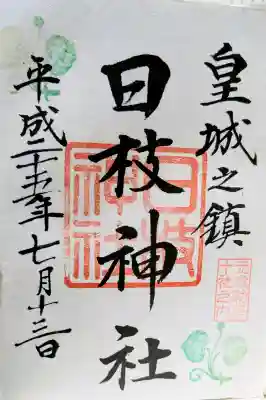 皇城之鎮
日枝神社
平成二十五年七月十三日
日枝神社